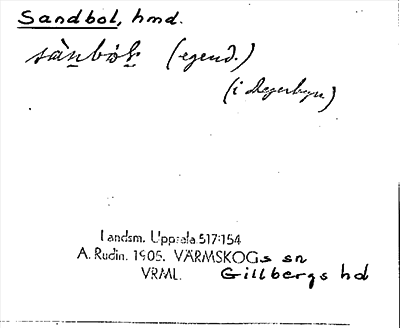 Sandbol, hmd.
sàn̲bół̲ (egend.)
(i Degerbyn)
Landsm. Uppsala 517:154
A. Rudin. 1905. VÄRMSKOGs sn
VRML. Gillbergs hd